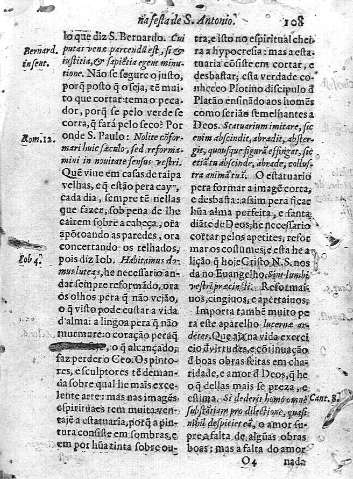 na festa de S. Antonio.
108
lo que diz S. Bernardo. Cui
putas venæ parcendũ est, si &
iustitia, & sapiẽtia egent minu-
tione. Não se segure o justo,
porq̃ posto q̃ o seja, tẽ mui-
to que cortar: tem o peca-
dor, porq̃ se pelo verde se
corta, q̃ fará pelo seco? Por
onde S. Paulo: Nolite cõfor-
mari huic sæculo, sed reforma-
mini in novitate sensus vestri.
Que vive em casas de taipa
velhas, e q̃ estão pera cair,
cada dia, sempre tẽ nellas
que fazer, sob pena de lhe
caírem sobre a cabeça, ora
apõtoando as paredes, ora
concertando os telhados,
pois diz Iob. Habitamus do-
mus luteas, he necessario an-
dar sempre reformãdo, ora
os olhos pera q̃ não vejão,
o q̃ visto pode custar a vida
d'alma: a lingoa pera q̃ não
murmure: o coração peraq̃
, o q̃ alcançado,
faz perder o Ceo. Os pinto-
res, e sculptores tẽ deman-
da sobre qual he mais exce-
lente arte: mas nas imagẽs
espirituaes tem muita ven-
tajẽ a estatuaria, porq̃ a pin-
tura consiste em sombras, e
em por hũa tinta sobre ou-
Bernard.
in sent.
Rom. 12.
Iob 4.
tra, e isto no espiritual chei-
ra a hypocresia: mas a esta-
tuaria cõsiste em cortar, e
desbastar; esta verdade co-
nheceo Plotino discipulo d̃
Platão ensinãdo aos homẽs
como serião semelhantes a
Deos. Statuarium imitare, sic
enim abscindit, abradit, abster-
git, quousque figurã effingat, sic
etiã tu abscinde, abrade, collus-
tra animã tuã. O estatuario
pera formar a imagẽ corta,
e desbasta: assim pera ficar
hũa alma perfeita, e santa
diãte de Deos, he necessario
cortar pelos apetites, refor-
mar os costumes, e esta he a
lição q̃ hoje Cristo N. S. nos
da no Euangelho, Sint lumbi
vestri præcincti. Reformai-
vos, cingiuos, e apertainos,
Importa tambẽ muito pe
ra este aparelho lucernæ ar-
dentes. Que aja na vida exer-
cicio d̃ virtudes, e cõtinuação
d̃ boas obras feitas em cha-
ridade, e amor d̃ Deos, q̃ he
o q̃ dellas mais se preza, e
estima. Si dederit homo omnẽ
substãtiam pro dilectione, quasi
nihil despiciet eã, o amor su-
pre a falta de, algũas obras
boas; mas a falta do amor
Cant. 8.
O4
nada